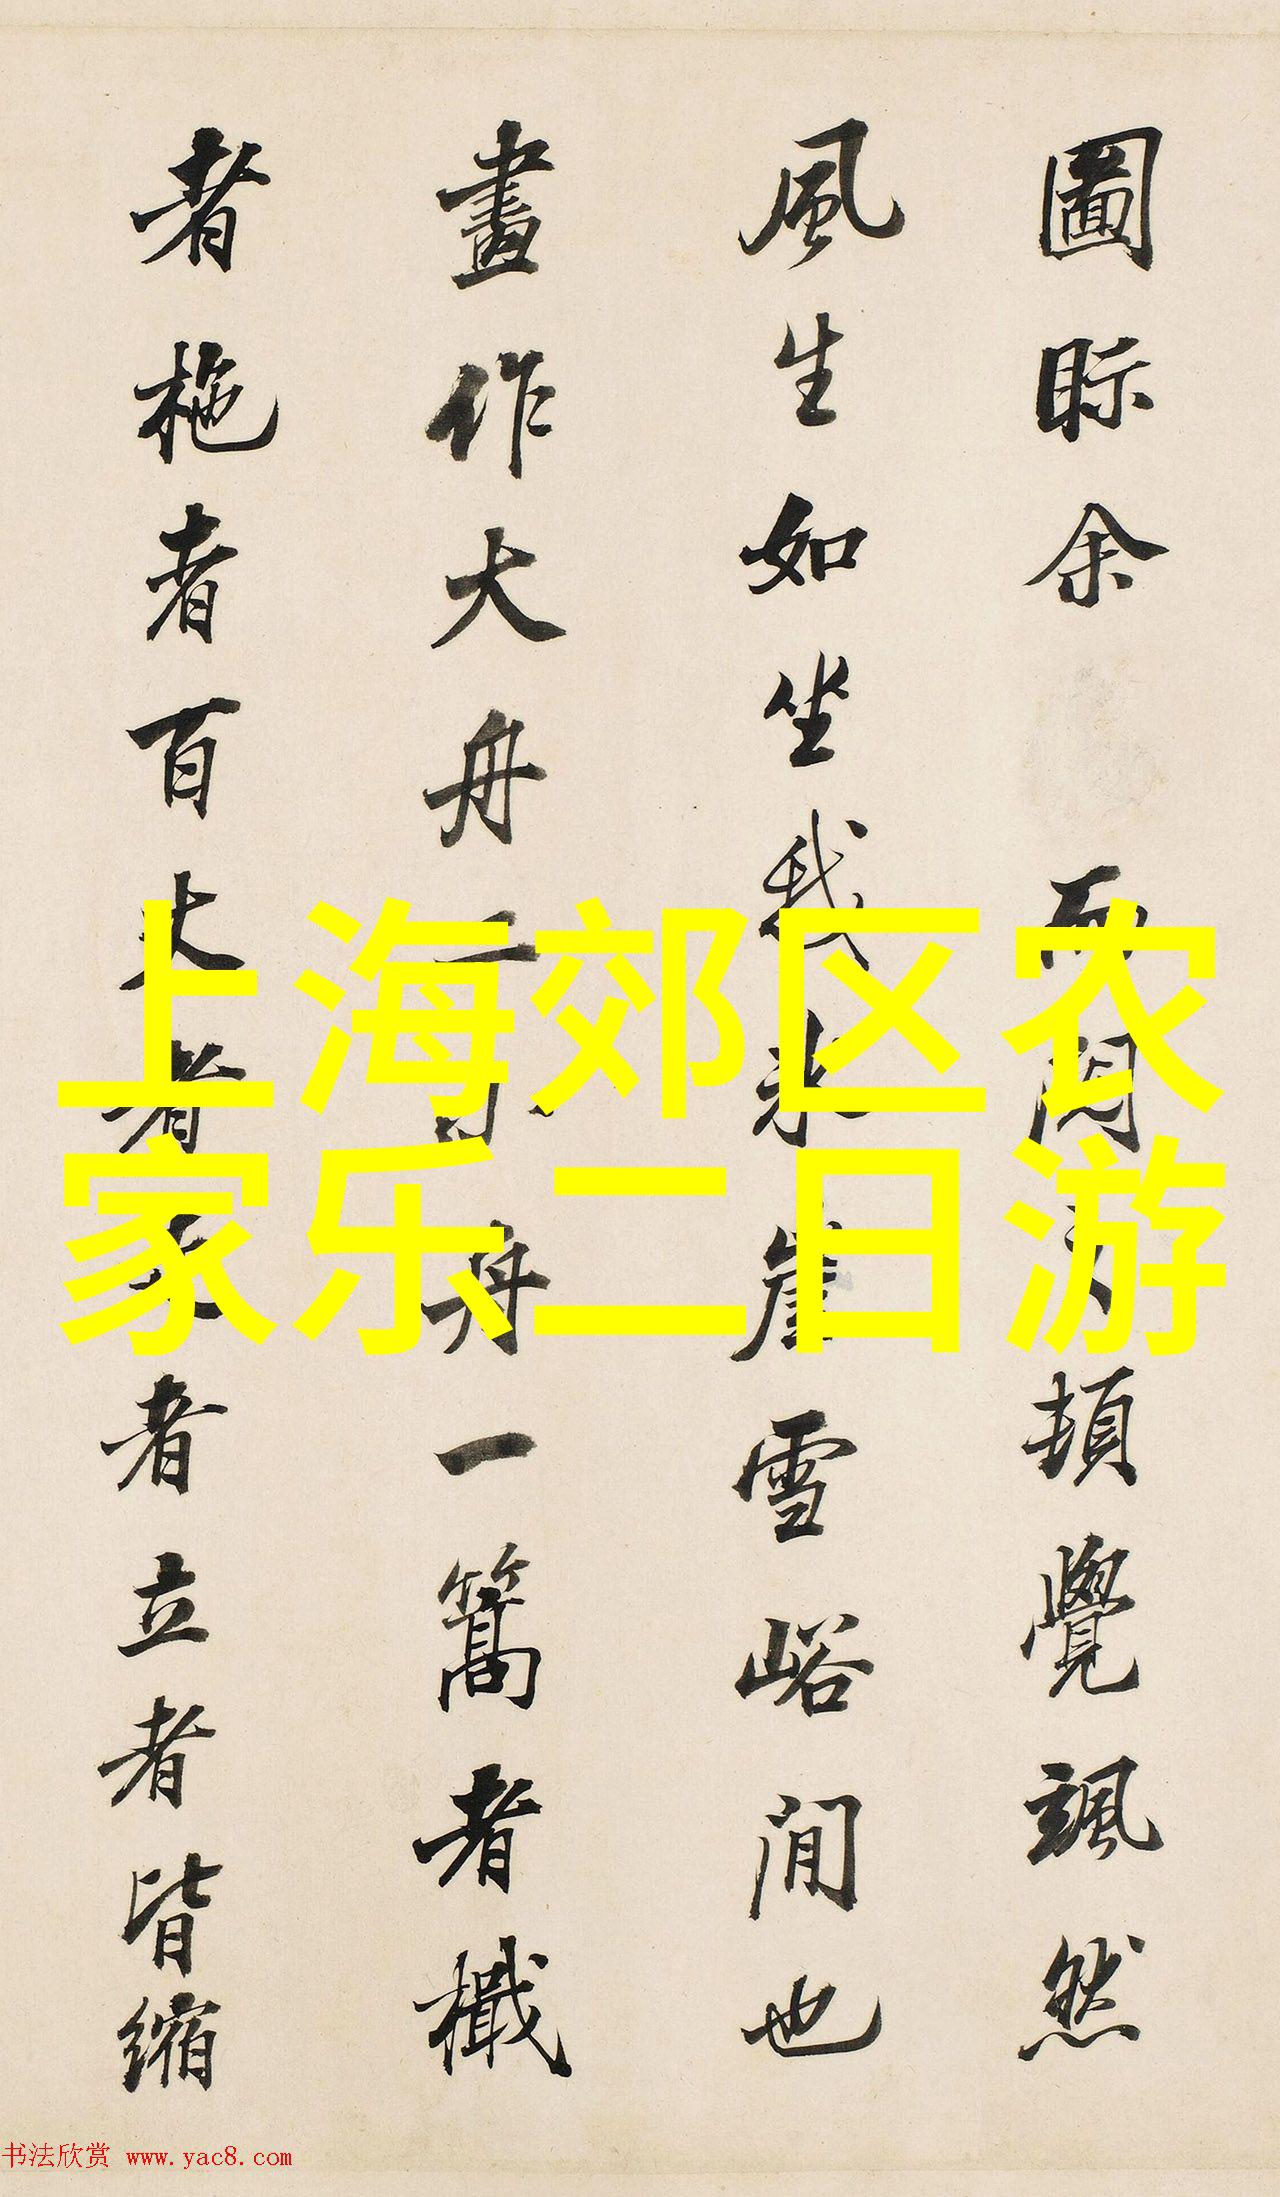 圖眎余而閱之頓覺颯然
風生如坐我氷崖雪峪間也
畫作大舟一小舟一篙者檝
者柂者百丈者者立者皆縮
上海郊区农
家乐二日游
书法欣赏 www.yac8.com